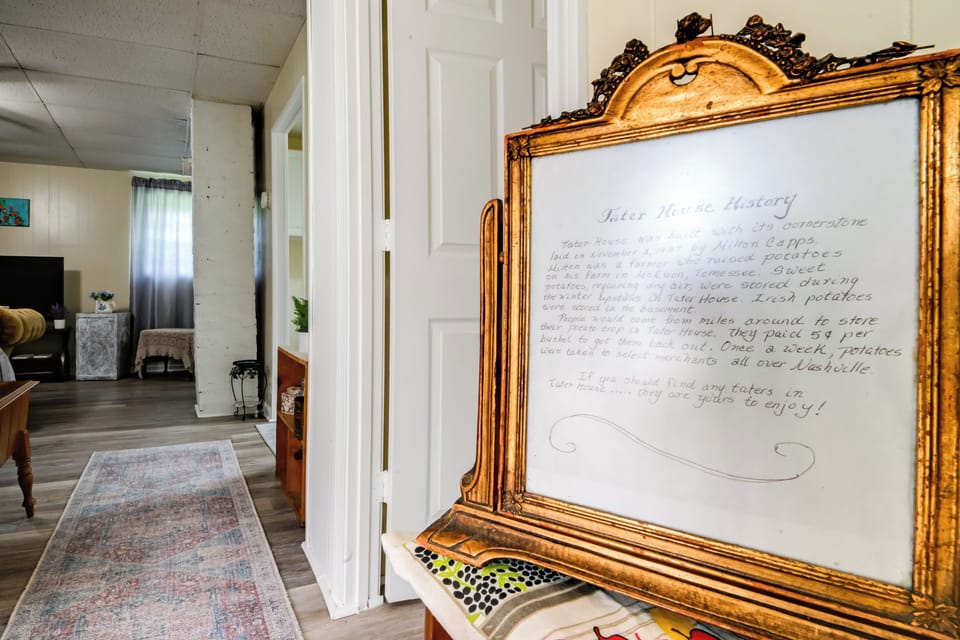 Tater House History
Tater House was built with its cornerstone
laid on November 2, by Milton Capps.
Milton was a farmer who raised potatoes
on his farm in McEwen, Tennessee. Sweet
potatoes, requiring dry air, were stored during
the winter upstairs in Tater House. Irish potatoes
were stored in the basement.
People would come from miles around to store
their potato crop in Tater House. They paid 5¢ per
bushel to get them back out. Once a week, potatoes
were taken to select merchants all over Nashville.
If you should find any taters in
Tater House..... they are yours to enjoy!